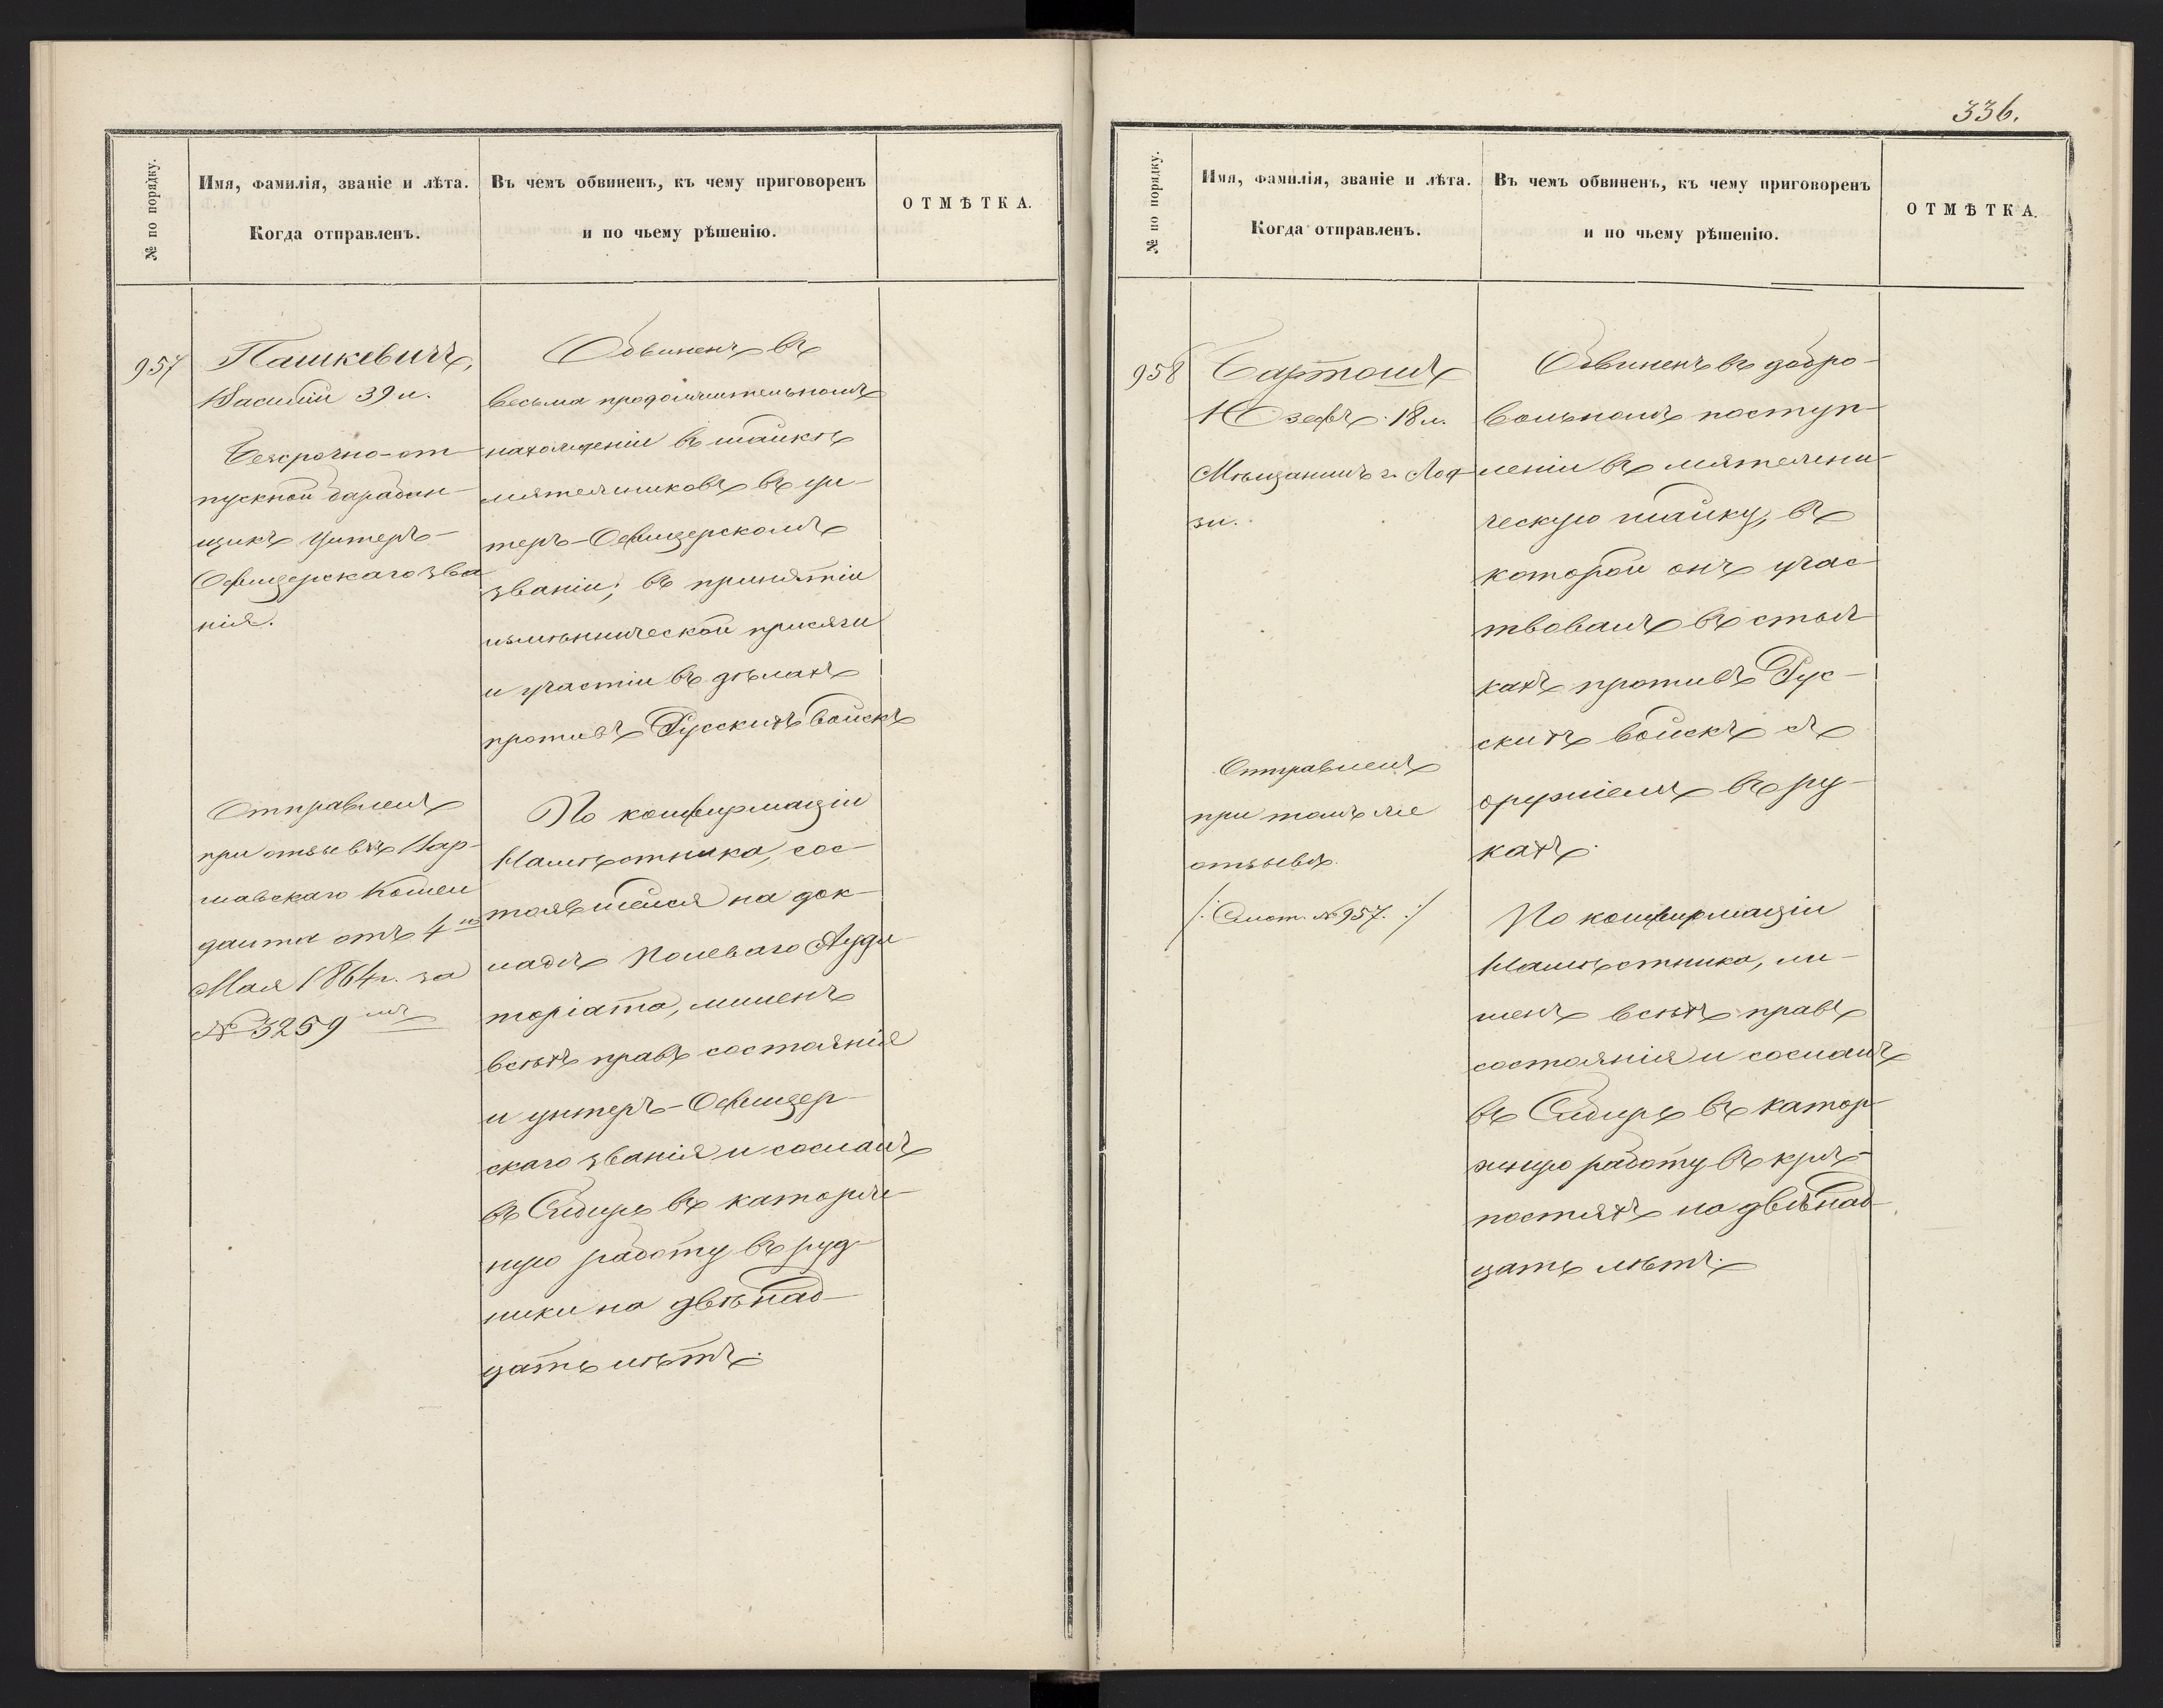 № по порядку.
Имя, фамилія, званіе и лѣта.
Когда отправленъ.
Въ чемъ обвиненъ, къ чему приговоренъ
и по чьему рѣшенію.
ОТМѢТКА.
957
Пашкевичъ,
Василій 39 л.
Безсрочно-от-
пускной барабан-
щикъ Унтеръ-
Офицерскаго зва
нія.
Отправленъ
при отзывѣ Вар-
шавскаго Комен
данта отъ 4го
Мая 1864 г. за
№ 3259мъ
Обвиненъ въ
весьма продолжительномъ
нахожденіи въ шайкѣ
мятежниковъ въ ун-
теръ-Офицерскомъ
званіи; въ принятіи
измѣннической присяги
и участіи въ дѣлахъ
противъ Русскихъ войскъ
По конфирмаціи
Намѣстника, сос-
тоявшейся на док-
ладѣ Полеваго Ауди-
торіата, лишенъ
всѣхъ правъ состоянія
и унтеръ-Офицер-
скаго званія и сосланъ
въ Сибирь въ каторж-
ную работу въ руд-
ники на двѣнад-
цать лѣтъ.
336.
№ по порядку.
Имя, фамилія, званіе и лѣта.
Когда отправленъ.
Въ чемъ обвиненъ, къ чему приговоренъ
и по чьему рѣшенію.
ОТМѢТКА.
958
Бартошъ
Юзефъ. 18 л.
Мѣщанинъ г. Лод-
зи.
Отправленъ
при томъ же
отзывѣ.
/: Смот. № 957. :/
Обвиненъ въ добро-
вольномъ поступ-
леніи въ мятежни-
ческую шайку, въ
которой онъ учас-
твовалъ въ стыч
кахъ противъ Рус-
скихъ войскъ съ
оружіемъ въ ру-
кахъ.
По конфирмаціи
Намѣстника, ли-
шенъ всѣхъ правъ
состоянія и сосланъ
въ Сибирь въ катор-
жную работу въ крѣ-
постяхъ на двѣнад-
цать лѣтъ.